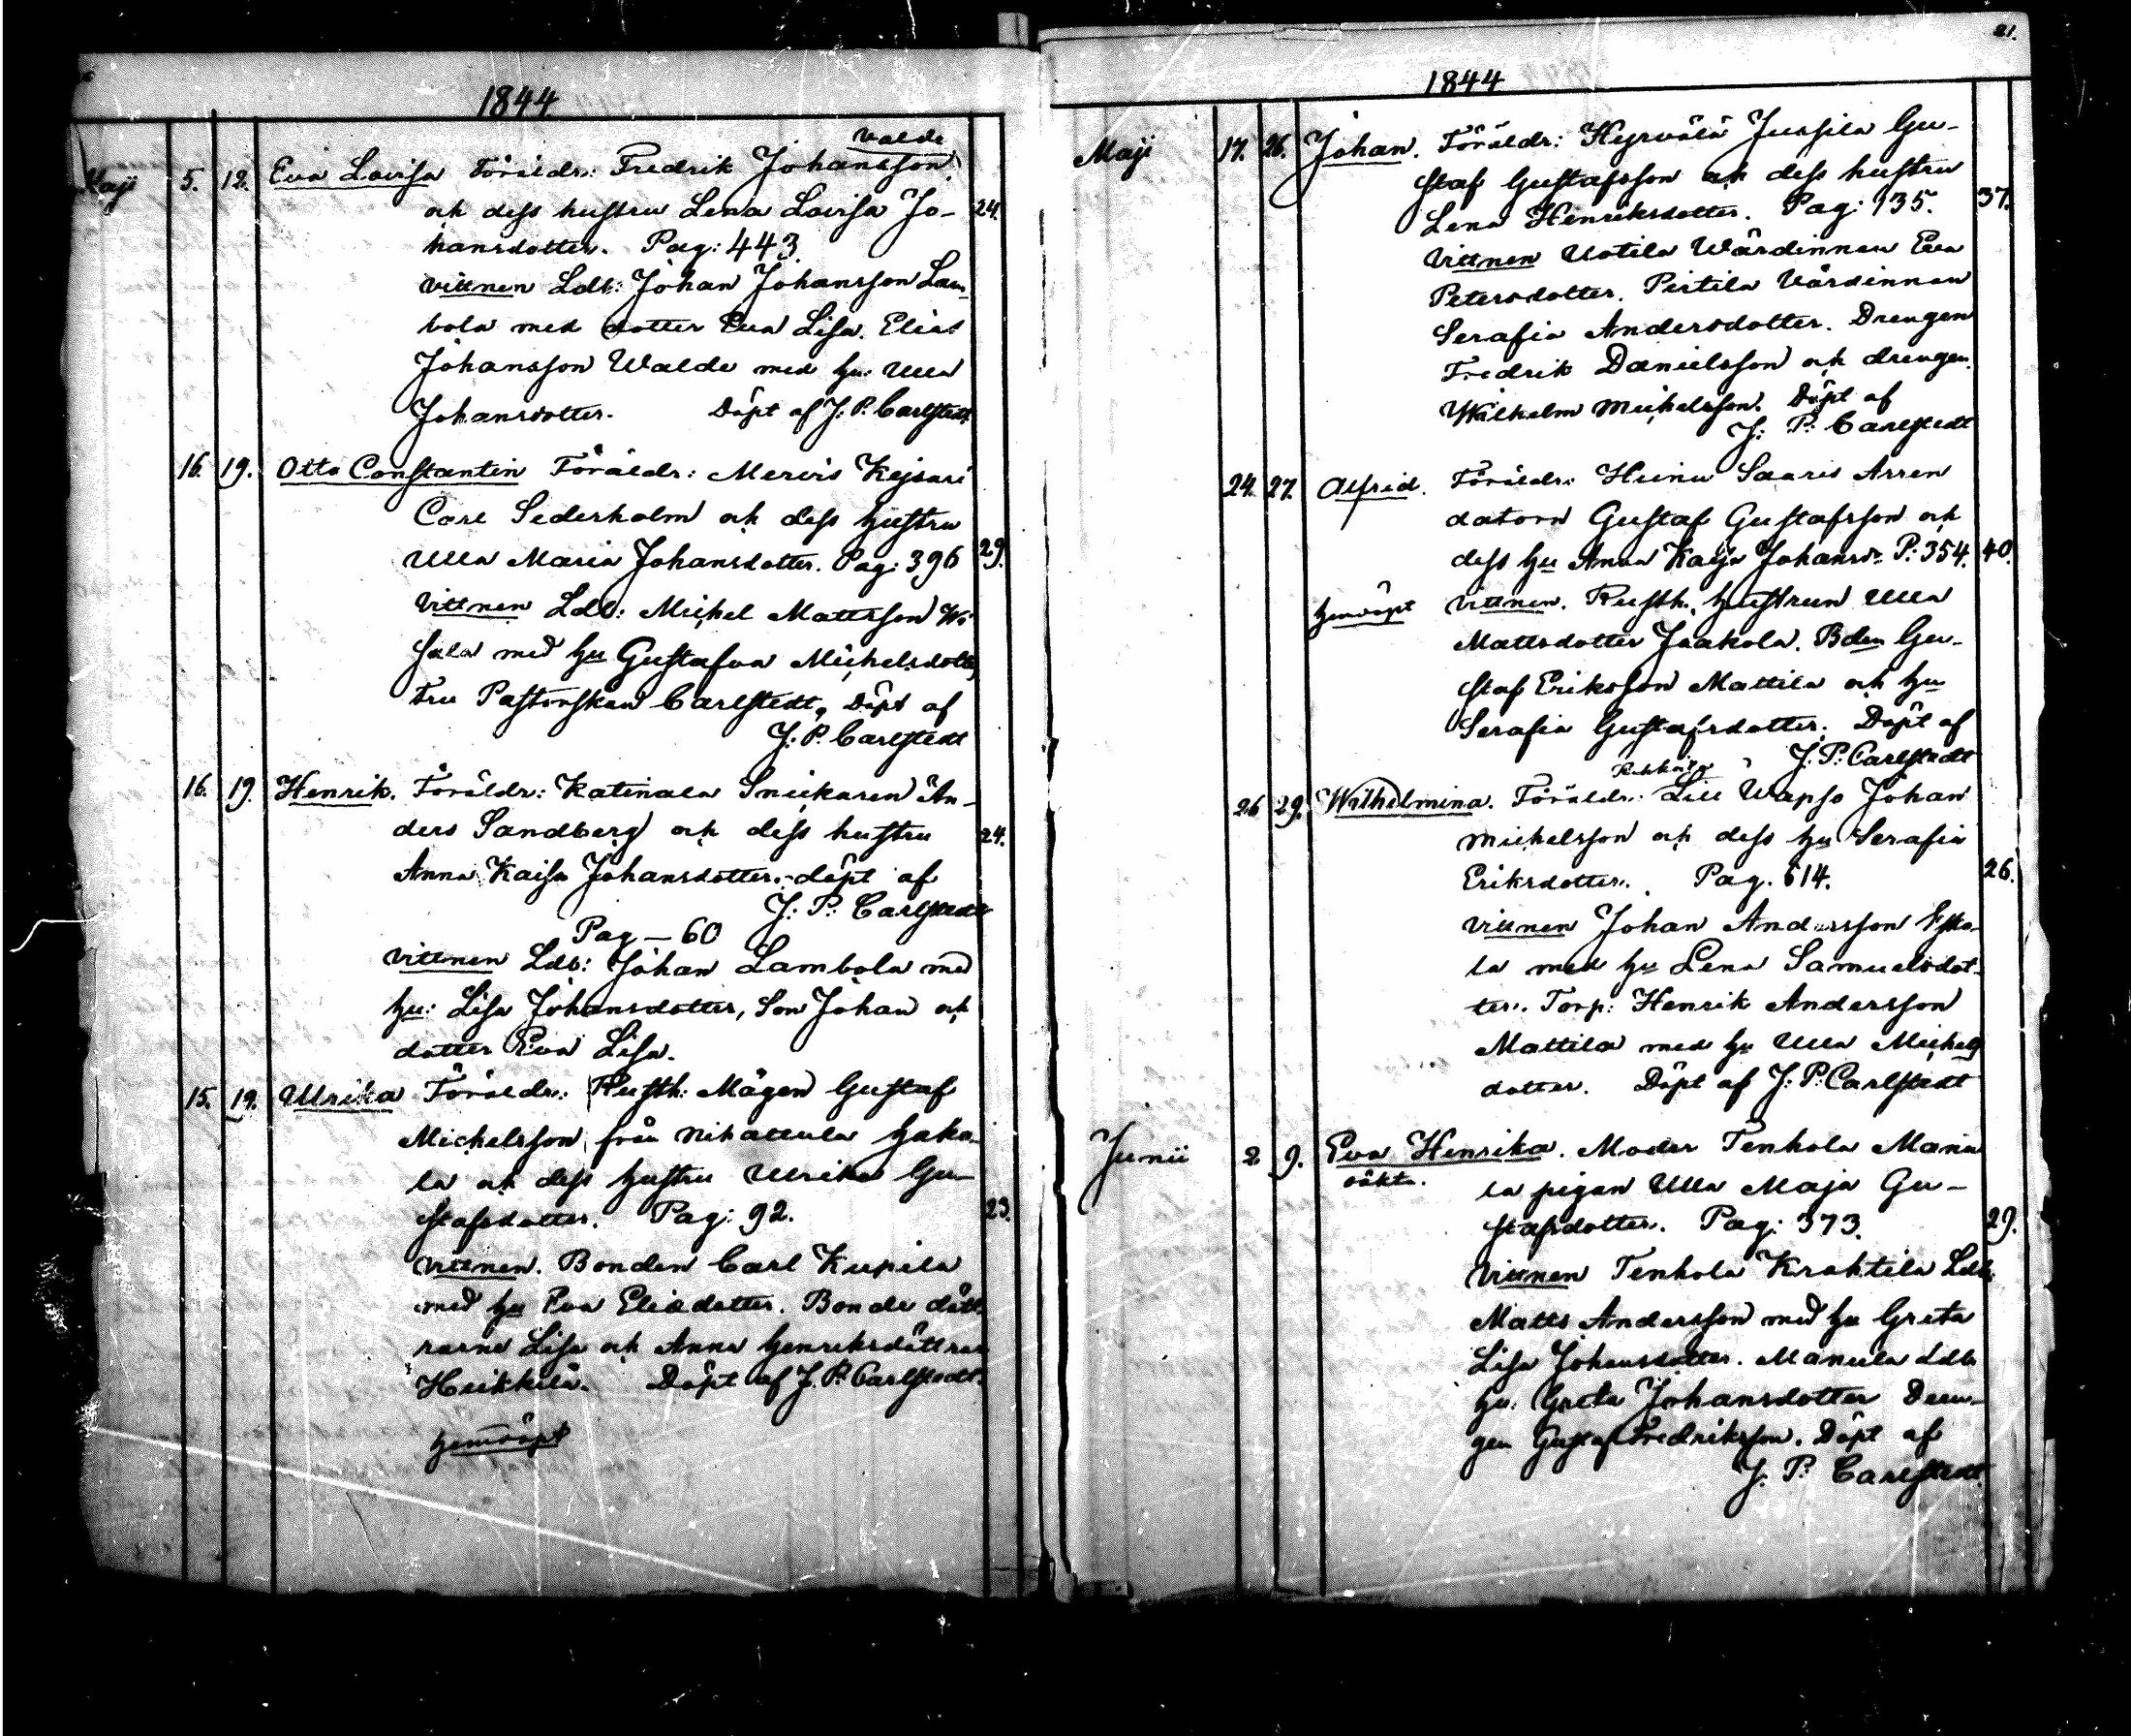 1844
Maji 5. 12. Eva Lovisa Föräldr: Fredrik Johansson Walde
och dess hustru Lena Lovisa Jo- 24.
hansdotter. Pag: 443
Vittnen Ldb: Johan Johansson Lam-
bola med dotter Eva Lisa. Elias
Johansson Walde med hu Ulla
Johansdotter. Döpt af J. P. Carlstedt
16. 19. Otto Constantin Föräldr: Mervis Kejsari
Carl Sederholm och dess hustru
Ulla Maria Johansdotter. Pag: 396 29.
Vittnen Ldb: Michel Mattsson
med hu Gustafva Michelsdotter
Fru Pastorskan Carlstedt, Döpt af
J. P. Carlstedt
16. 19. Henrik. Föräldr: Katinala Snickaren An-
ders Sandberg och dess hustru 24.
Anna Kaisa Johansdotter. döpt af
J: P: Carlstedt
Pag — 60
Vittnen Ldb: Johan Lambola med
hu: Lisa Johansdotter, Son Johan och
dotter Eva Lisa.
15. 19. Ulrika Föräldr: Rusth: Mågen Gustaf
Michelsson från Nihattula Jako-
la och dess hustru Ulrika Gu-
stafsdotter. Pag: 92. 23.
Vittnen. Bonden Carl Kupila
med hu Eva Eliædotter. Bonde dött-
rarne Lisa och Anna Henriksdöttrar
Heikkilä. Döpt af J. P. Carlstedt.
Hemdöpt
21.
1844
Maji 17. 26. Johan. Föräldr: Hyrvälä Jussila Gu-
staf Gustafsson och dess hustru
Lena Henriksdotter. Pag: 135. 37.
Vittnen Uotila Wärdinnan Eva
Petersdotter. Pirtila Värdinnan
Serafia Andersdotter. Drengen
Fredrik Danielsson och drengen
Wilhelm Michelsson. Döpt af
J: P: Carlstedt
24. 27. Alfrid. Föräldr: Heinu Saaris Arren
datorn Gustaf Gustafsson och
dess hu Anna Kajsa Johansd: P: 354. 40.
Hemdöpt Vittnen. Rusth. hustrun Ulla
Mattsdotter Jaakola. Bden Gu-
staf Eriksson Mattila och hu
Serafia Gustafsdotter. Döpt af
J: P: Carlstedt
26 29. Wilhelmina. Föräldr: Lill Wapso Johan
Michelsson och dess hu Serafia
Eriksdotter. Pag. 614. 26.
Vittnen Johan Andersson
la med hu Lena Samuelsdot-
ter. Torp: Henrik Andersson
Mattila med hu Ulla Michels
dotter. Döpt af J: P: Carlstedt
Junii 2 9. Eva Henrika. Moder Tenhola Manu
oäkta. la pigan Ulla Maja Gu-
stafsdotter. Pag: 373. 29.
Vittnen Tenhola Krahtila Ldb
Matts Andersson med hu Greta
Lisa Johansdotter. Manula Ldb
hu: Greta Johansdotter Dren-
gen Gustaf Fredriksson. Döpt af
J. P. Carlstedt